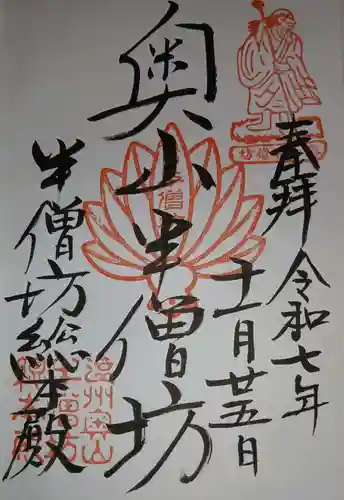 奉拝
令和七年
十一月廿五日
奥山半僧坊
半僧坊総本殿
遠州奥山
半僧坊